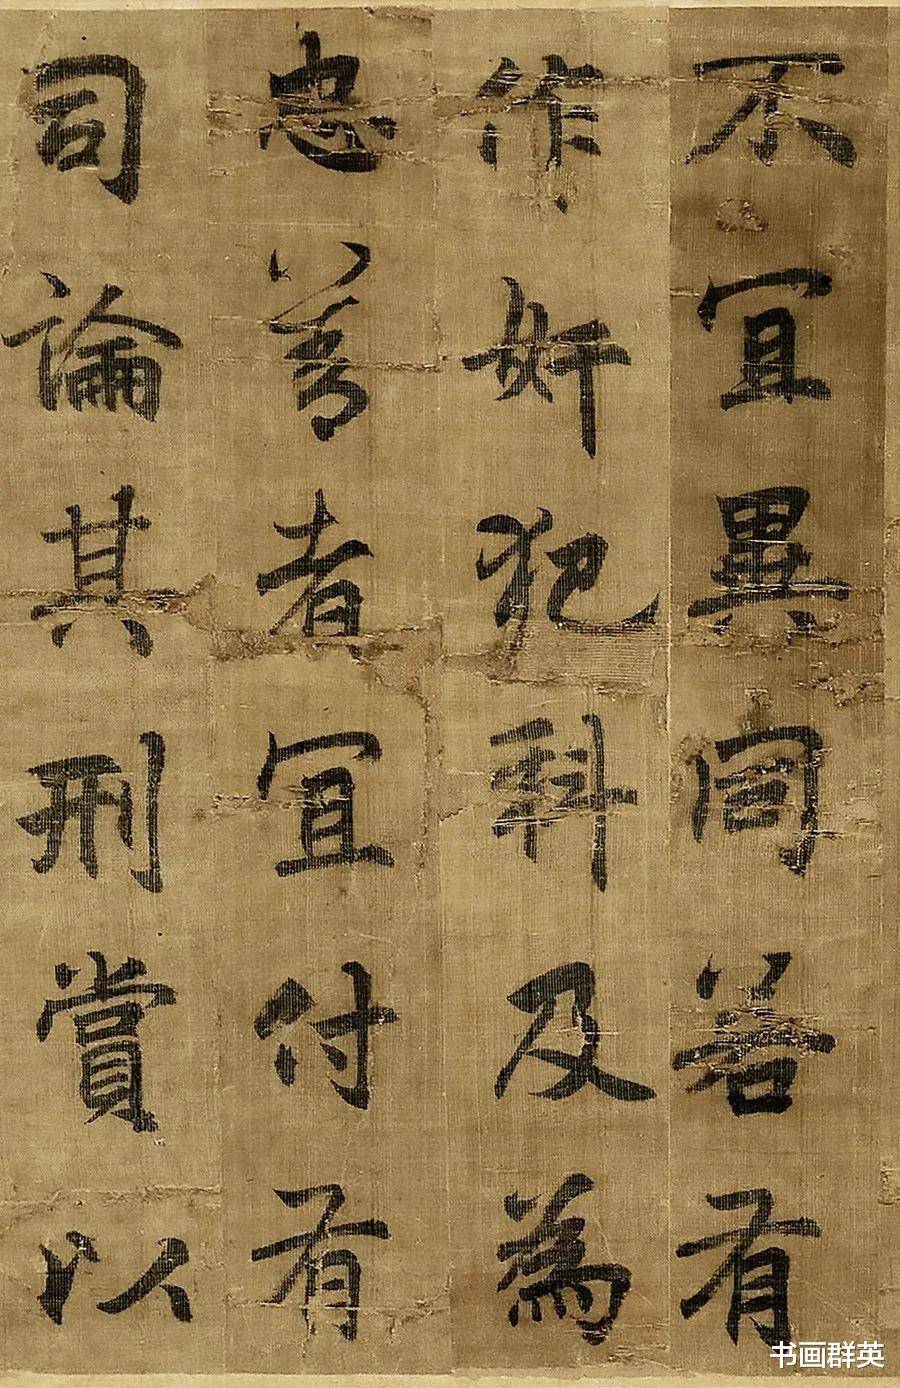 不宜異同若有
作奸犯科及為
忠善者宜付有
司論其刑賞以
书画群英